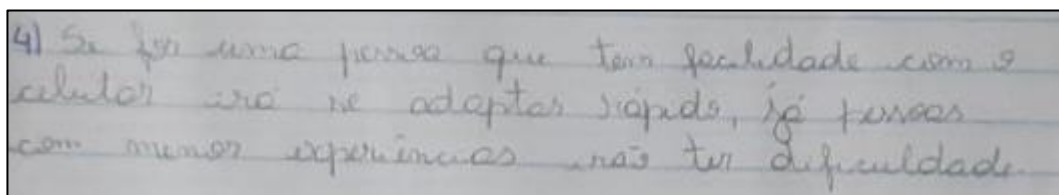 4) Se for uma pessoa que tem facilidade com o
celular irá se adaptar rápido, já pessoas
com menor experiências irão ter dificuldade.